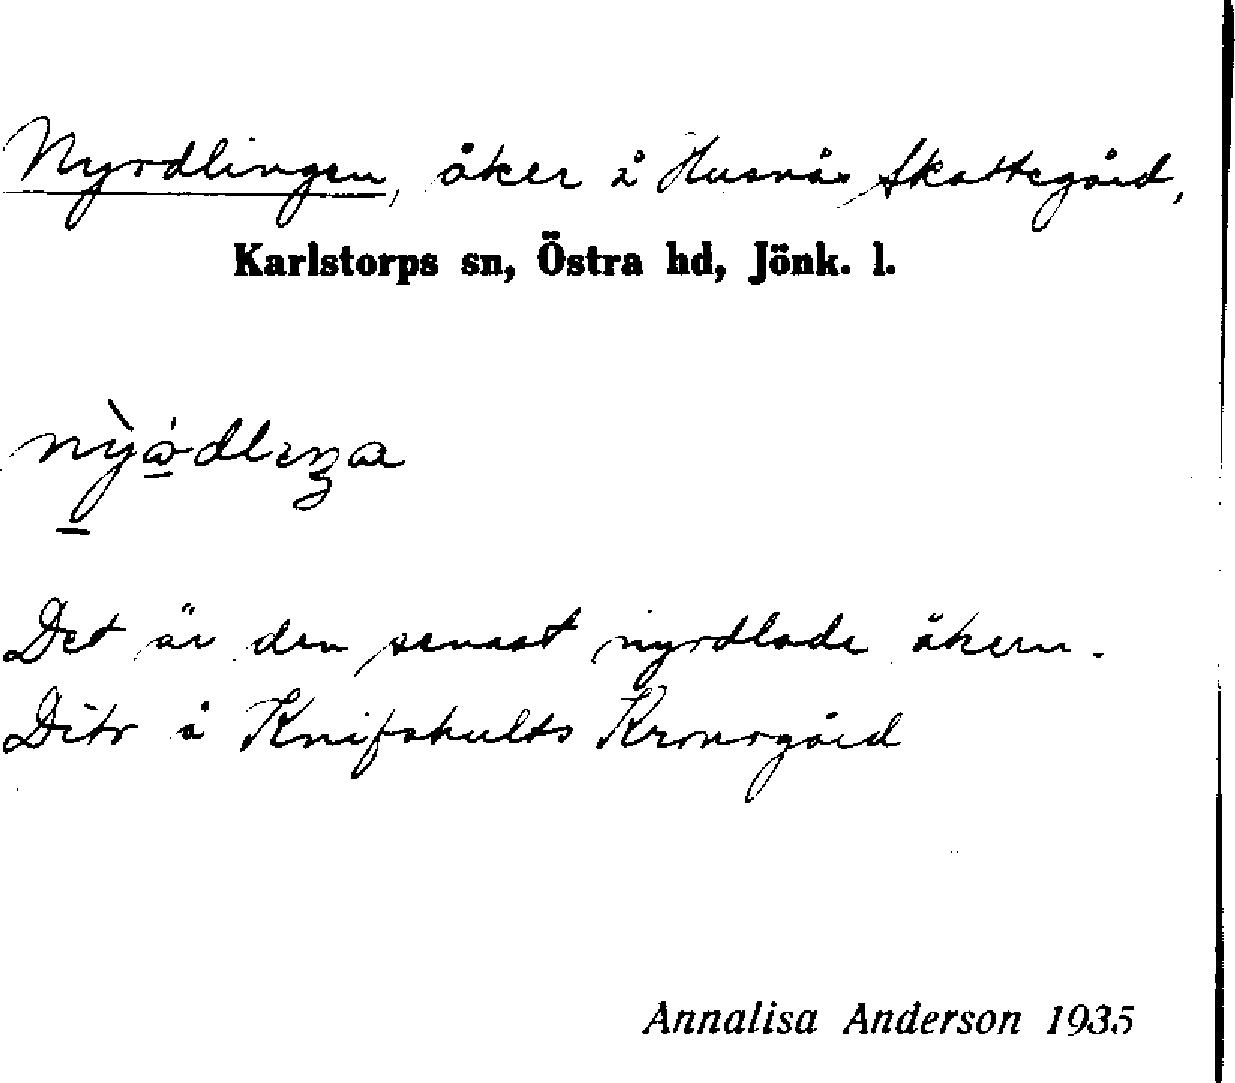 Nyodlingen, åker å Husnäs Skattegård,
Karlstorps sn, Östra hd, Jönk. l.
Det är den senast nyodlade åkern.
Dito å Knifskults Kronogård
Annalisa Anderson 1935